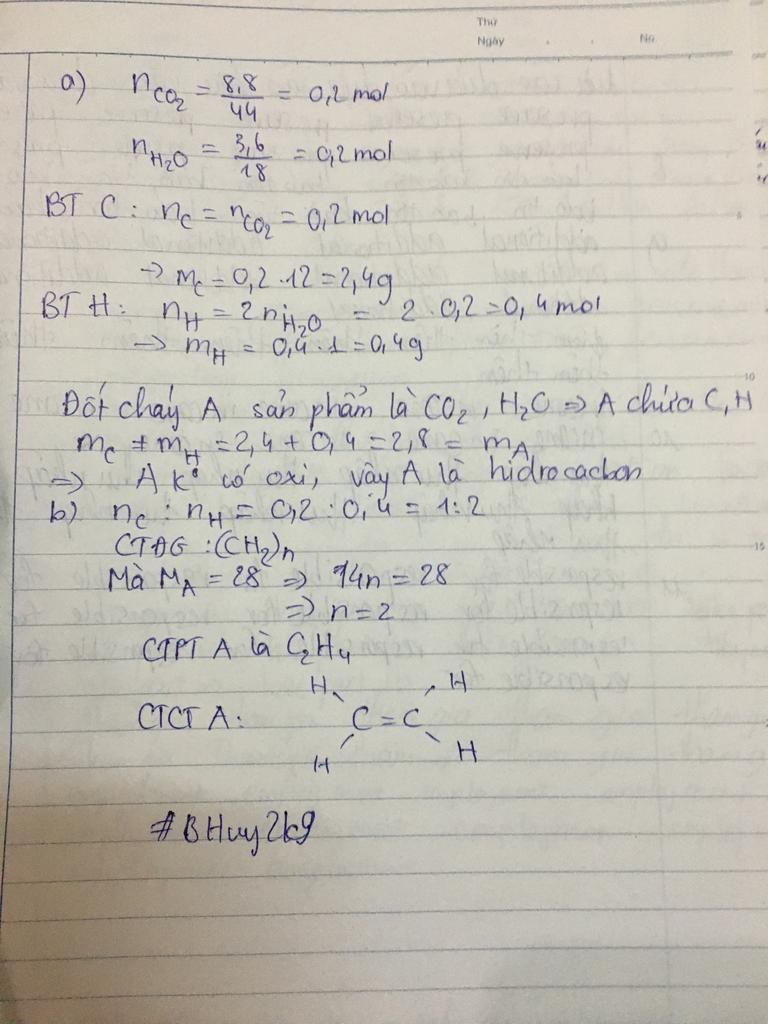 Thứ
Ngày . . No
a) nCO₂ = 8,8/44 = 0,2 mol
nH₂O = 3,6/18 = 0,2 mol
BT C : nC = nCO₂ = 0,2 mol
→ mC = 0,2 . 12 = 2,4g
BT H : nH = 2nH₂O = 2 . 0,2 = 0,4 mol
→ mH = 0,4 . 1 = 0,4g
Đốt cháy A sản phẩm là CO₂, H₂O ⇒ A chứa C, H
mC + mH = 2,4 + 0,4 = 2,8 = mA
⇒ A k° có oxi, vậy A là hidrocacbon
b) nC : nH = 0,2 : 0,4 = 1:2
CTĐG : (CH₂)n
Mà MA = 28 ⇒ 14n = 28
⇒ n = 2
CTPT A là C₂H₄
H H
CTCT A: C = C
H H
#BHuy2k9
10
15